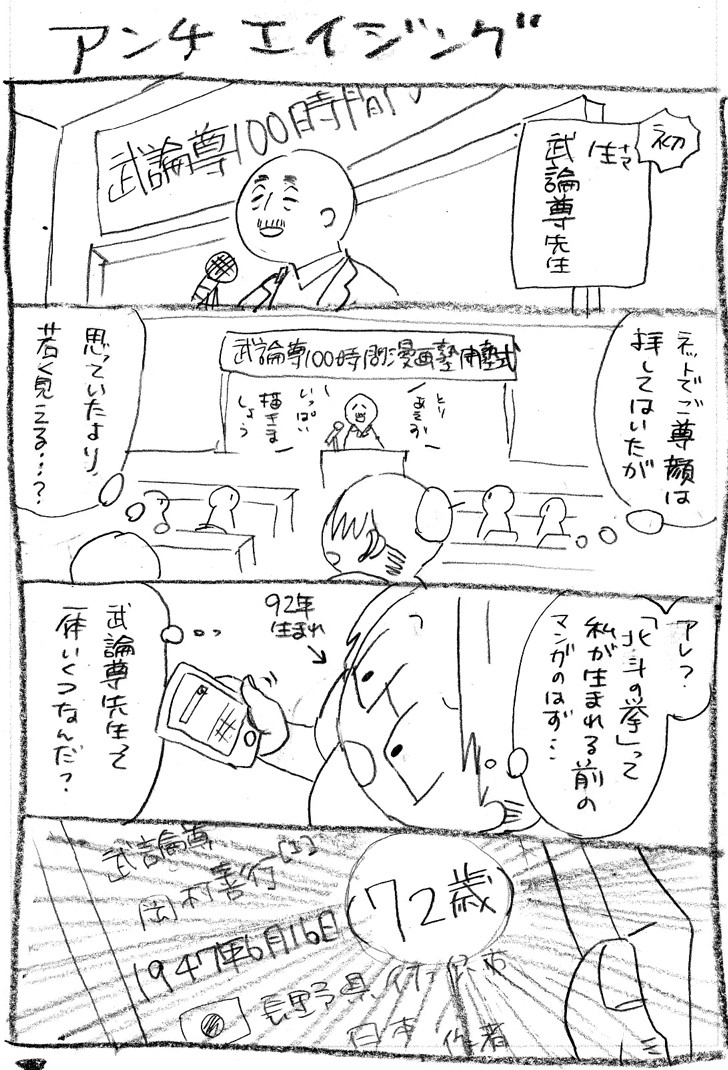 アンチエイジング
武論尊100時間
初
生ナマ
武論尊先生
ネットでご尊顔は
拝してはいたが
武論尊100時間漫画塾開塾式
とり
あえず
いっぱい
描きま
しょう
思っていたより
若く見える…?
アレ?
「北斗の拳」って
私が生まれる前の
マンガのはず…
92年
生まれ
武論尊先生って
一体いくつなんだ?
武論尊
岡村善行
1947年6月16日
(72歳)
長野県佐久市
日本 作者